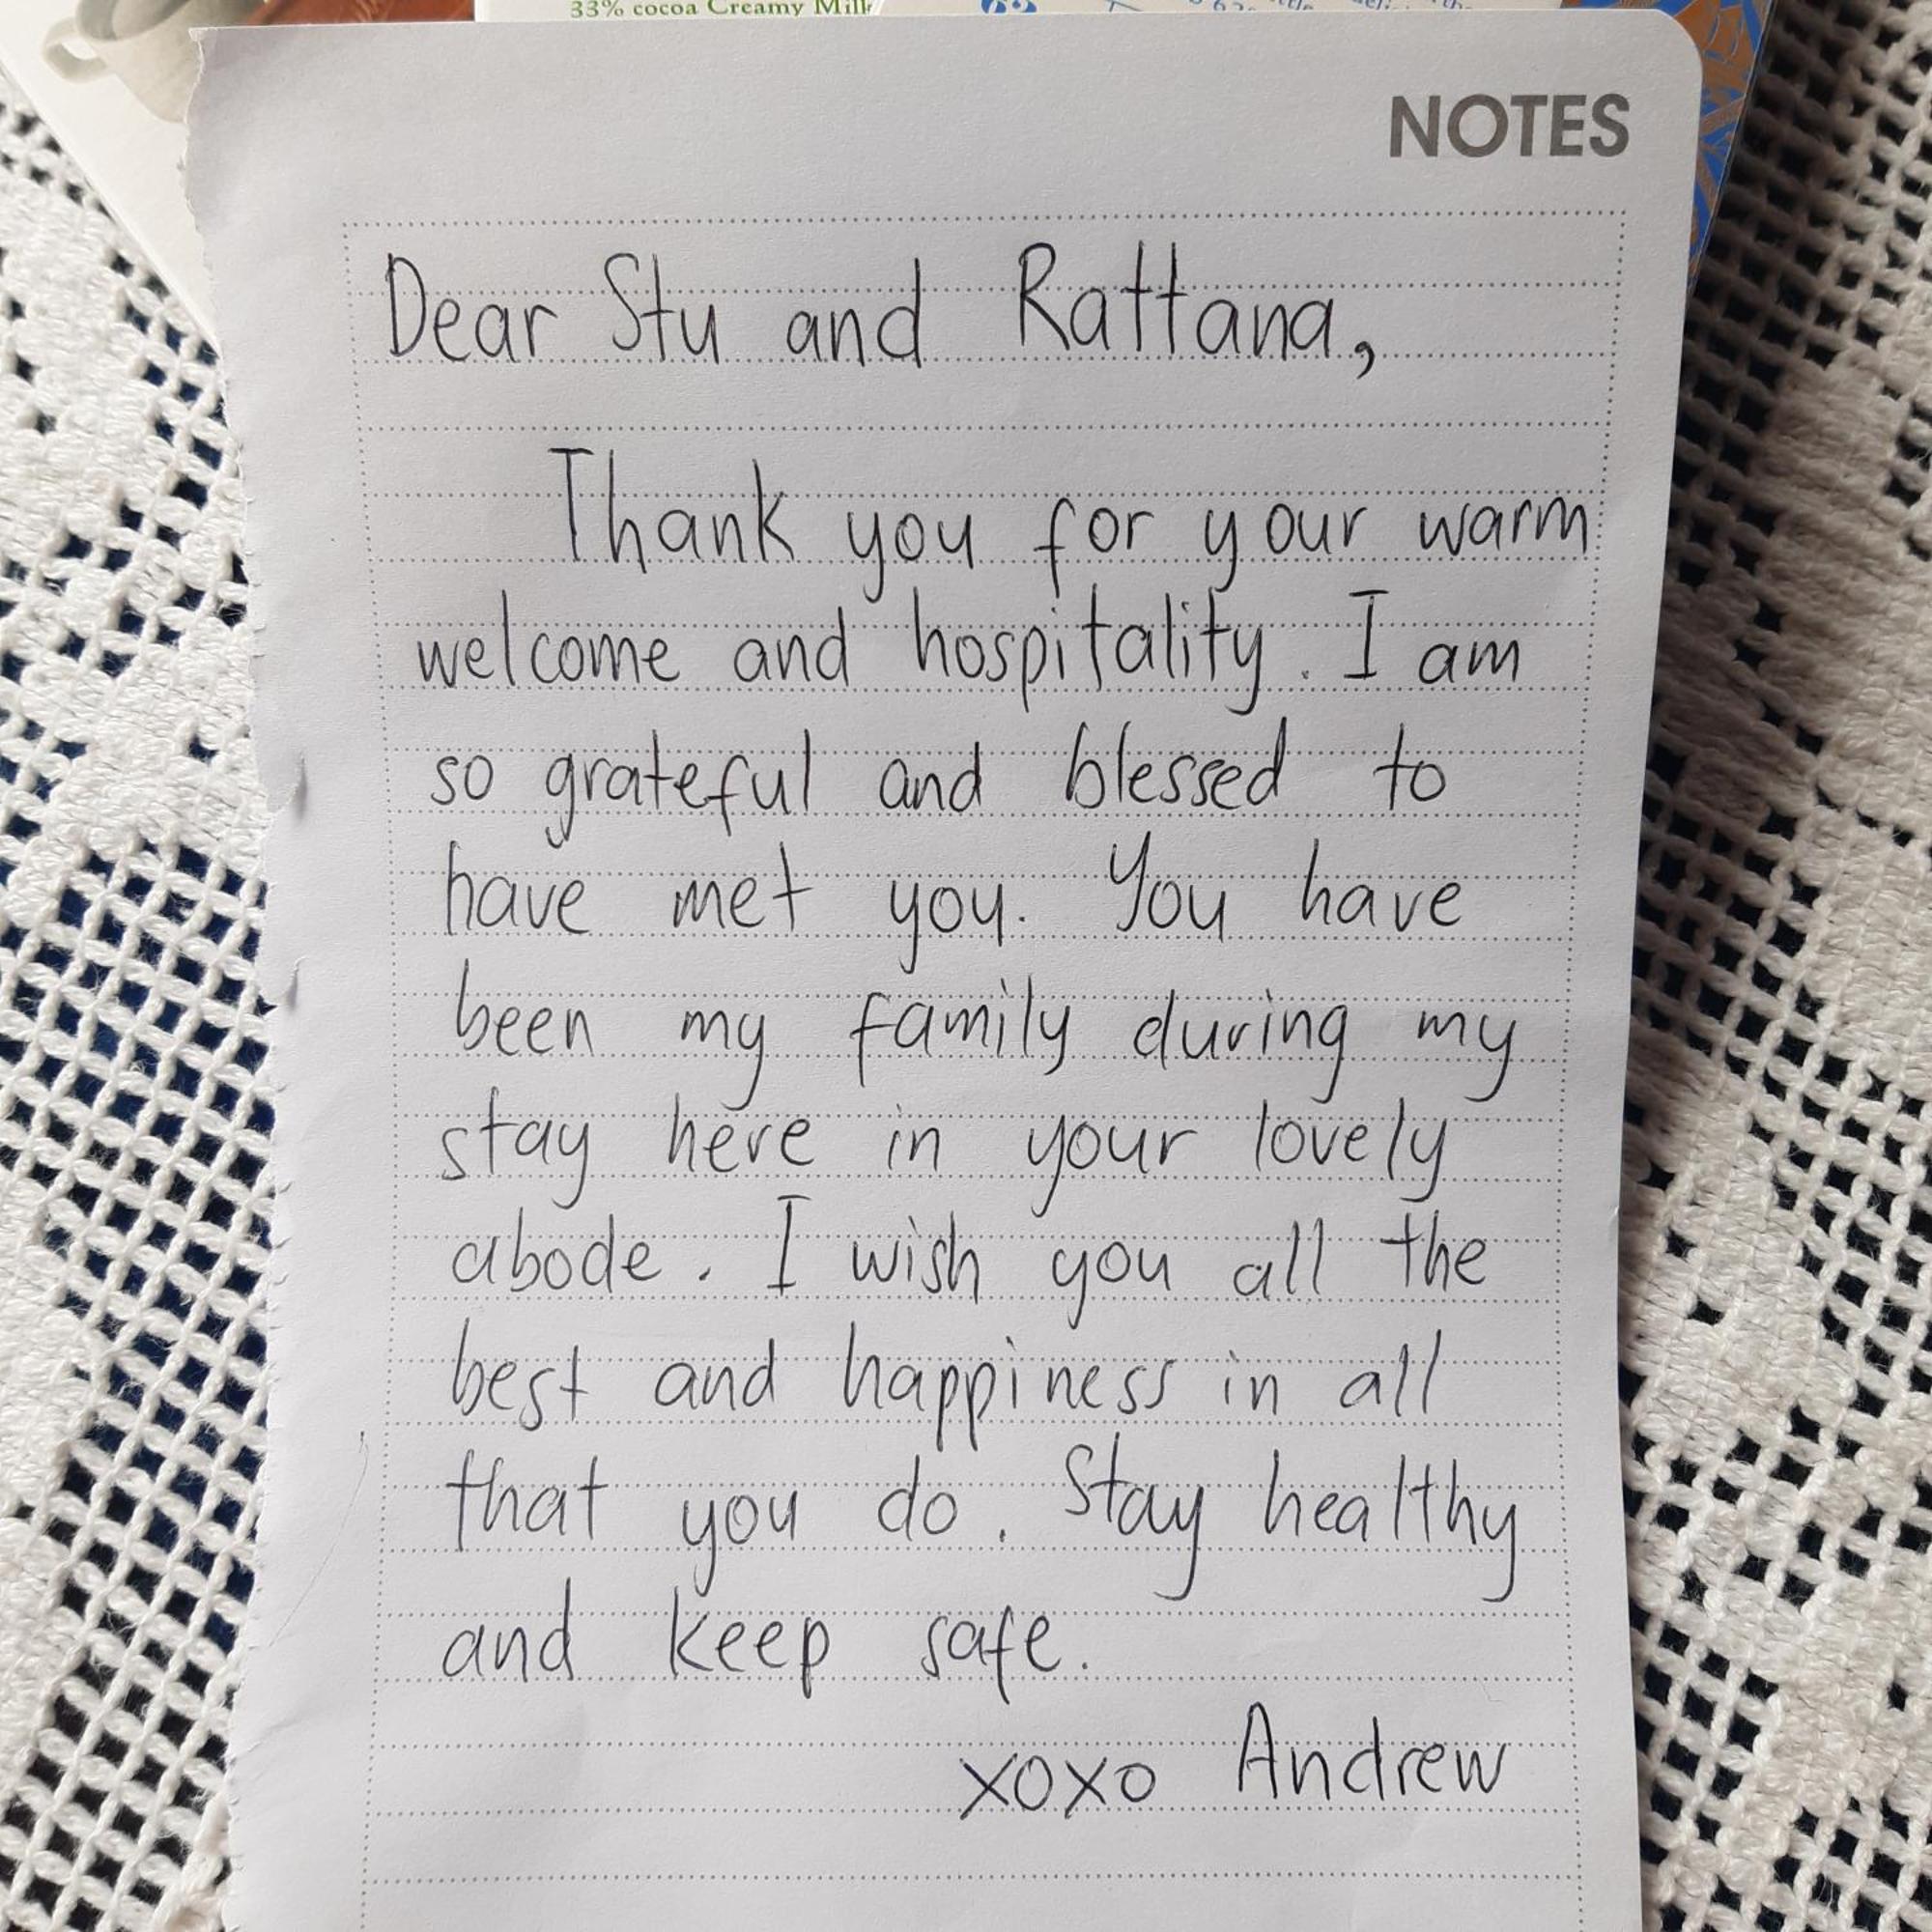 33% cocoa Creamy Milk
NOTES
Dear Stu and Rattana,
Thank you for your warm
welcome and hospitality. I am
so grateful and blessed to
have met you. You have
been my family during my
stay here in your lovely
abode. I wish you all the
best and happiness in all
that you do. Stay healthy
and keep safe.
xoxo Andrew